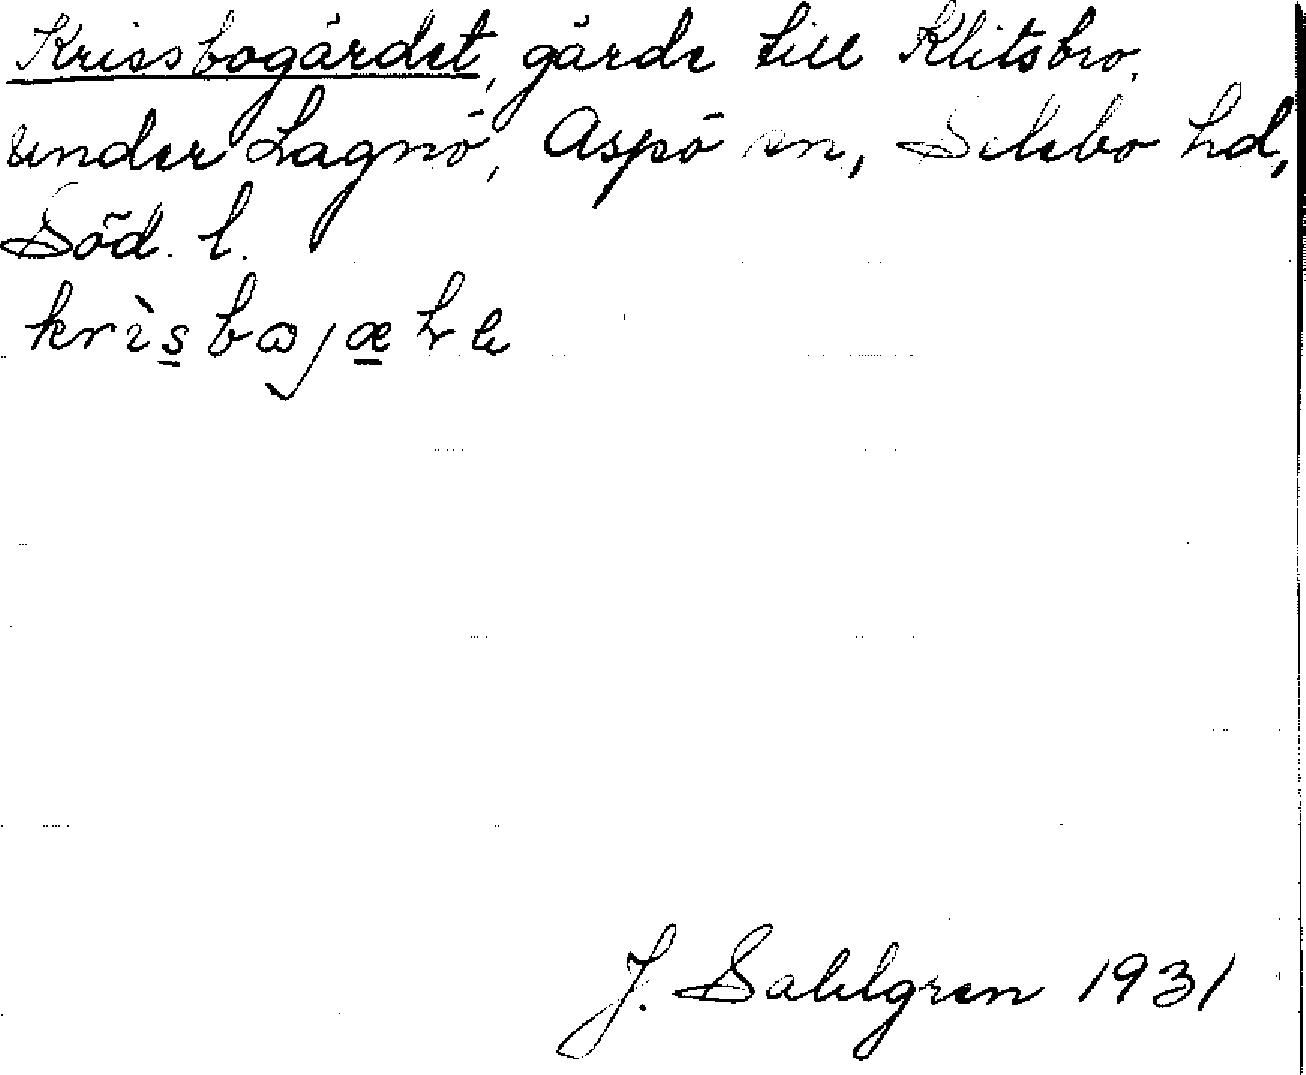 Krissbogärdet, gärde till Klitsbro,
under Lagnö, Aspö sn, Selebo hd,
Söd. l.
J. Sahlgren 1931